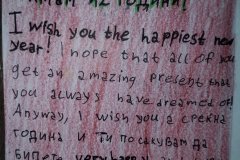 Имам 12 години!
I wish you the happiest new
year! I hope that all of you
get an amazing present that
you always have dreamed of!
Anyway, I wish you a срекна
година и ти посакувам да
бидете very happy